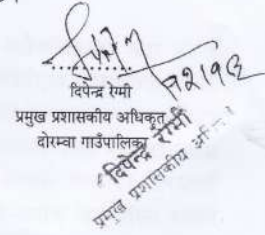 दिपेन्द्र रेग्मी
प्रमुख प्रशासकीय अधिकृत
दोरम्वा गाउँपालिका
दिपेन्द्र रेग्मी
प्रमुख प्रशासकीय